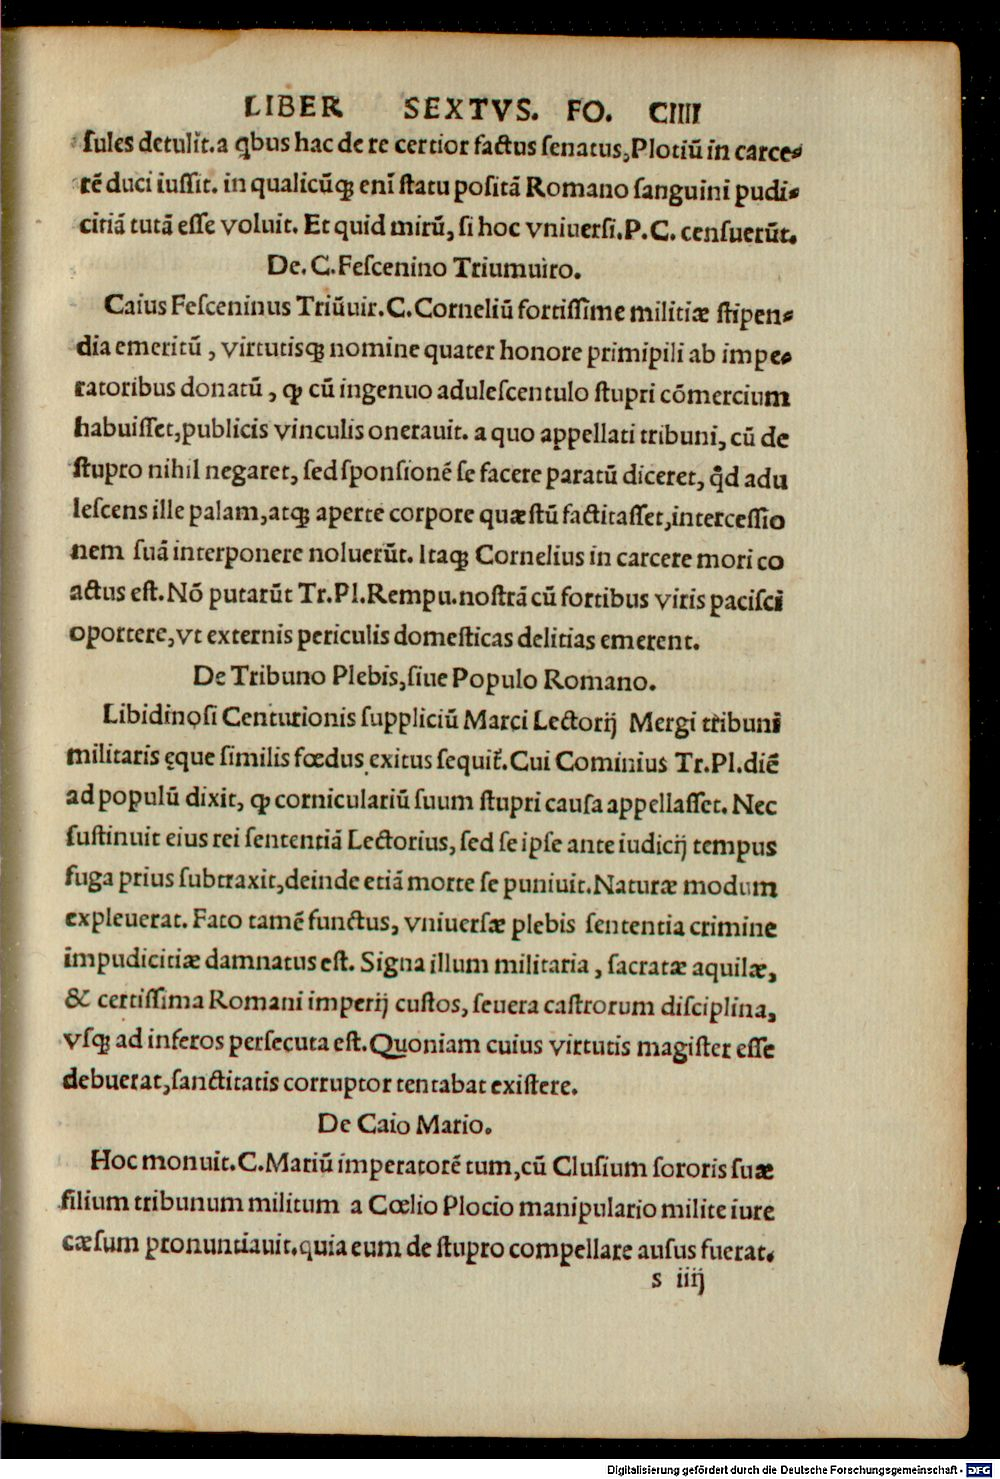 LIBER SEXTVS. FO. CIIII
ſules detulit̃. a ꝗbus hac de re certior factus ſenatus, Plotiũ in carce⸗
rẽ duci iuſſit. in qualicũqꝫ enĩ ſtatu poſitã Romano ſanguini pudi⸗
citiã tutã eſſe voluit. Et quid mirũ, ſi hoc vniuerſi. P. C. cenſuerũt.
De. C. Feſcenino Triumuiro.
Caius Feſceninus Triũuir. C. Corneliũ fortiſſime militiæ ſtipen⸗
dia emeritũ, virtutisqꝫ nomine quater honore primipili ab impe⸗
ratoribus donatũ, ꝙ cũ ingenuo aduleſcentulo ſtupri cõmercium
habuiſſet, publicis vinculis onerauit. a quo appellati tribuni, cũ de
ſtupro nihil negaret, ſed ſponſionẽ ſe facere paratũ diceret, ꝙd adu
leſcens ille palam, atqꝫ aperte corpore quæſtũ factitaſſet, interceſſio
nem ſuã interponere noluerũt. Itaqꝫ Cornelius in carcere mori co
actus eſt. Nõ putarũt Tr. Pl. Rempu. noſtrã cũ fortibus viris paciſci
oportere, vt externis periculis domeſticas delitias emerent.
De Tribuno Plebis, ſiue Populo Romano.
Libidinoſi Centurionis ſuppliciũ Marci Lectorij Mergi tribuni
militaris ęque ſimilis fœdus exitus ſequit̃. Cui Cominius Tr. Pl. diẽ
ad populũ dixit, ꝙ corniculariũ ſuum ſtupri cauſa appellaſſet. Nec
ſuſtinuit eius rei ſententiã Lectorius, ſed ſe ipſe ante iudicij tempus
fuga prius ſubtraxit, deinde etiã morte ſe puniuit. Naturæ modum
expleuerat. Fato tamẽ functus, vniuerſæ plebis ſententia crimine
impudicitiæ damnatus eſt. Signa illum militaria, ſacratæ aquilæ,
& certiſſima Romani imperij cuſtos, ſeuera caſtrorum diſciplina,
vſqꝫ ad inferos perſecuta eſt. Quoniam cuius virtutis magiſter eſſe
debuerat, ſanctitatis corruptor tentabat exiſtere.
De Caio Mario.
Hoc monuit. C. Mariũ imperatorẽ tum, cũ Cluſium ſororis ſuæ
filium tribunum militum a Cœlio Plocio manipulario milite iure
cæſum pronuntiauit. quia eum de ſtupro compellare auſus fuerat.
s iiij
Digitalisierung gefördert durch die Deutsche Forschungsgemeinschaft - DFG